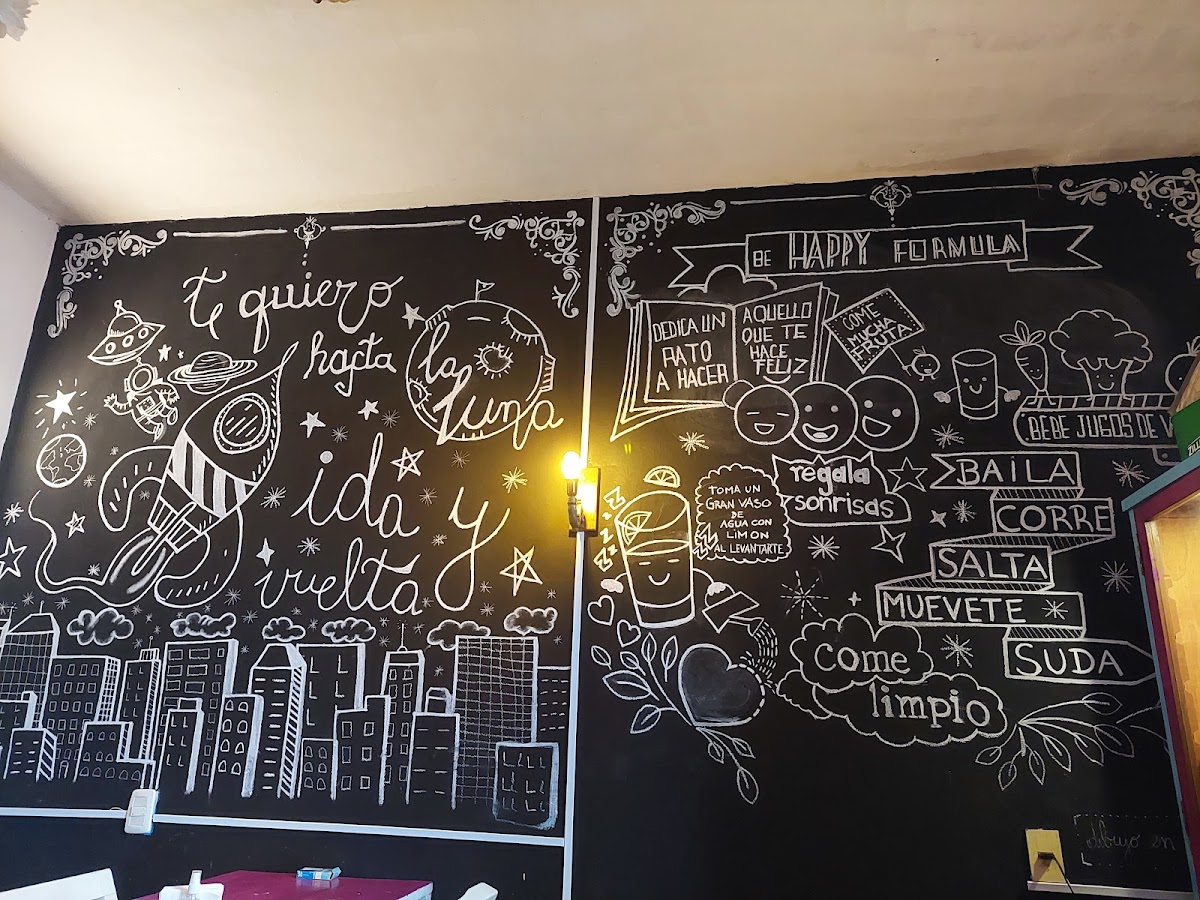 te quiero
hasta
la
luna
ida y
vuelta
BE HAPPY FORMULA
DEDICA UN
RATO
A HACER
AQUELLO
QUE TE
HACE
FELIZ
COME
MUCHA
FRUTA
BEBE JUGOS DE
regala
sonrisas
TOMA UN
GRAN VASO
DE
AGUA CON
LIMON
AL LEVANTARTE
BAILA
CORRE
SALTA
MUEVETE
SUDA
come
limpio
dibujo en